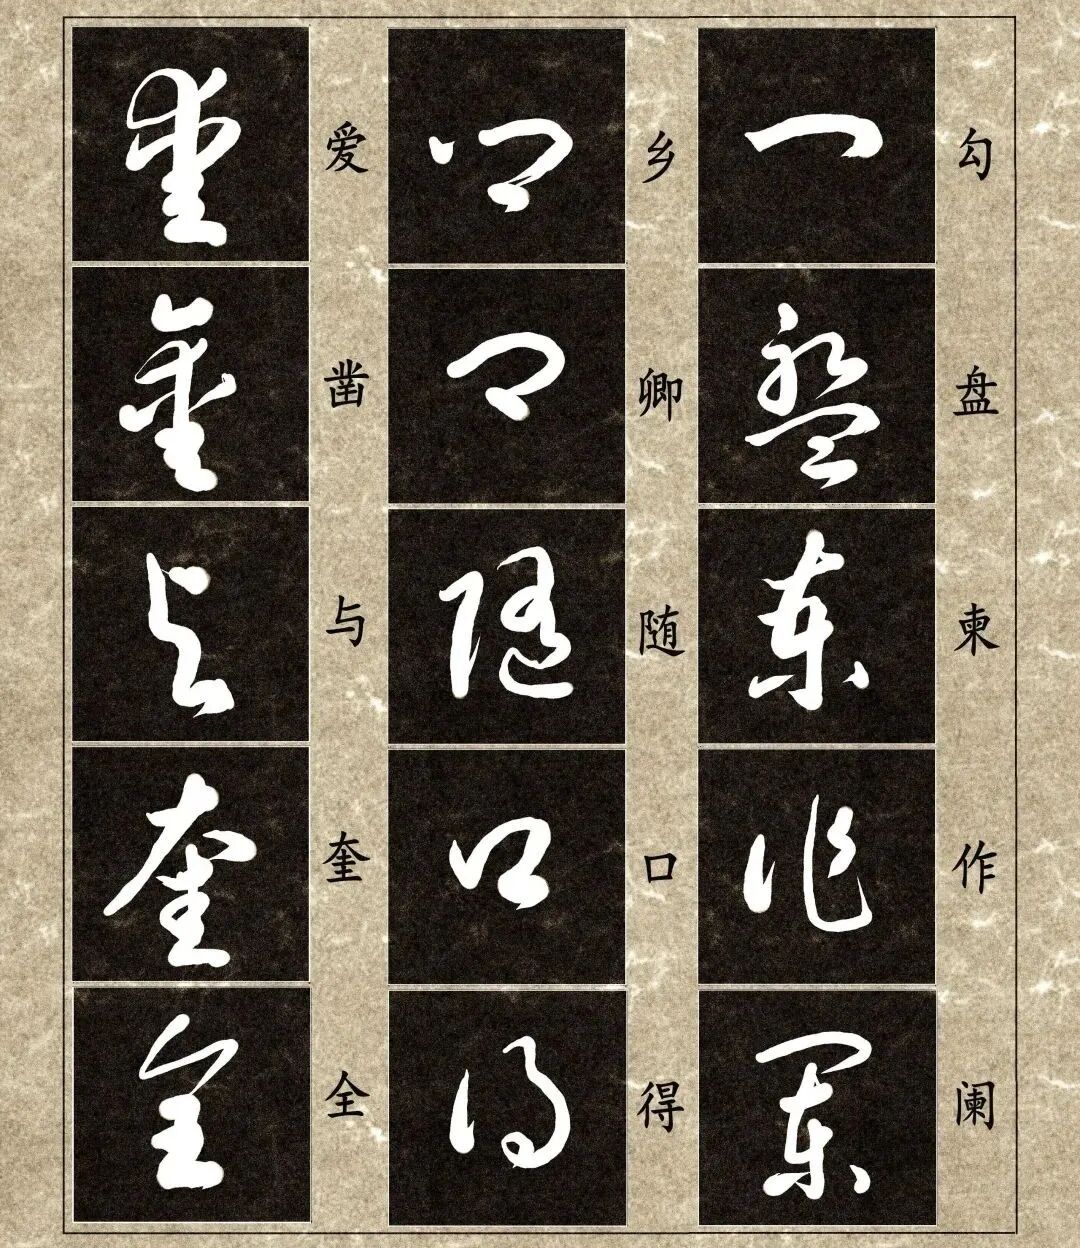 勾盘柬作阑
乡卿随口得
爱凿与奎全